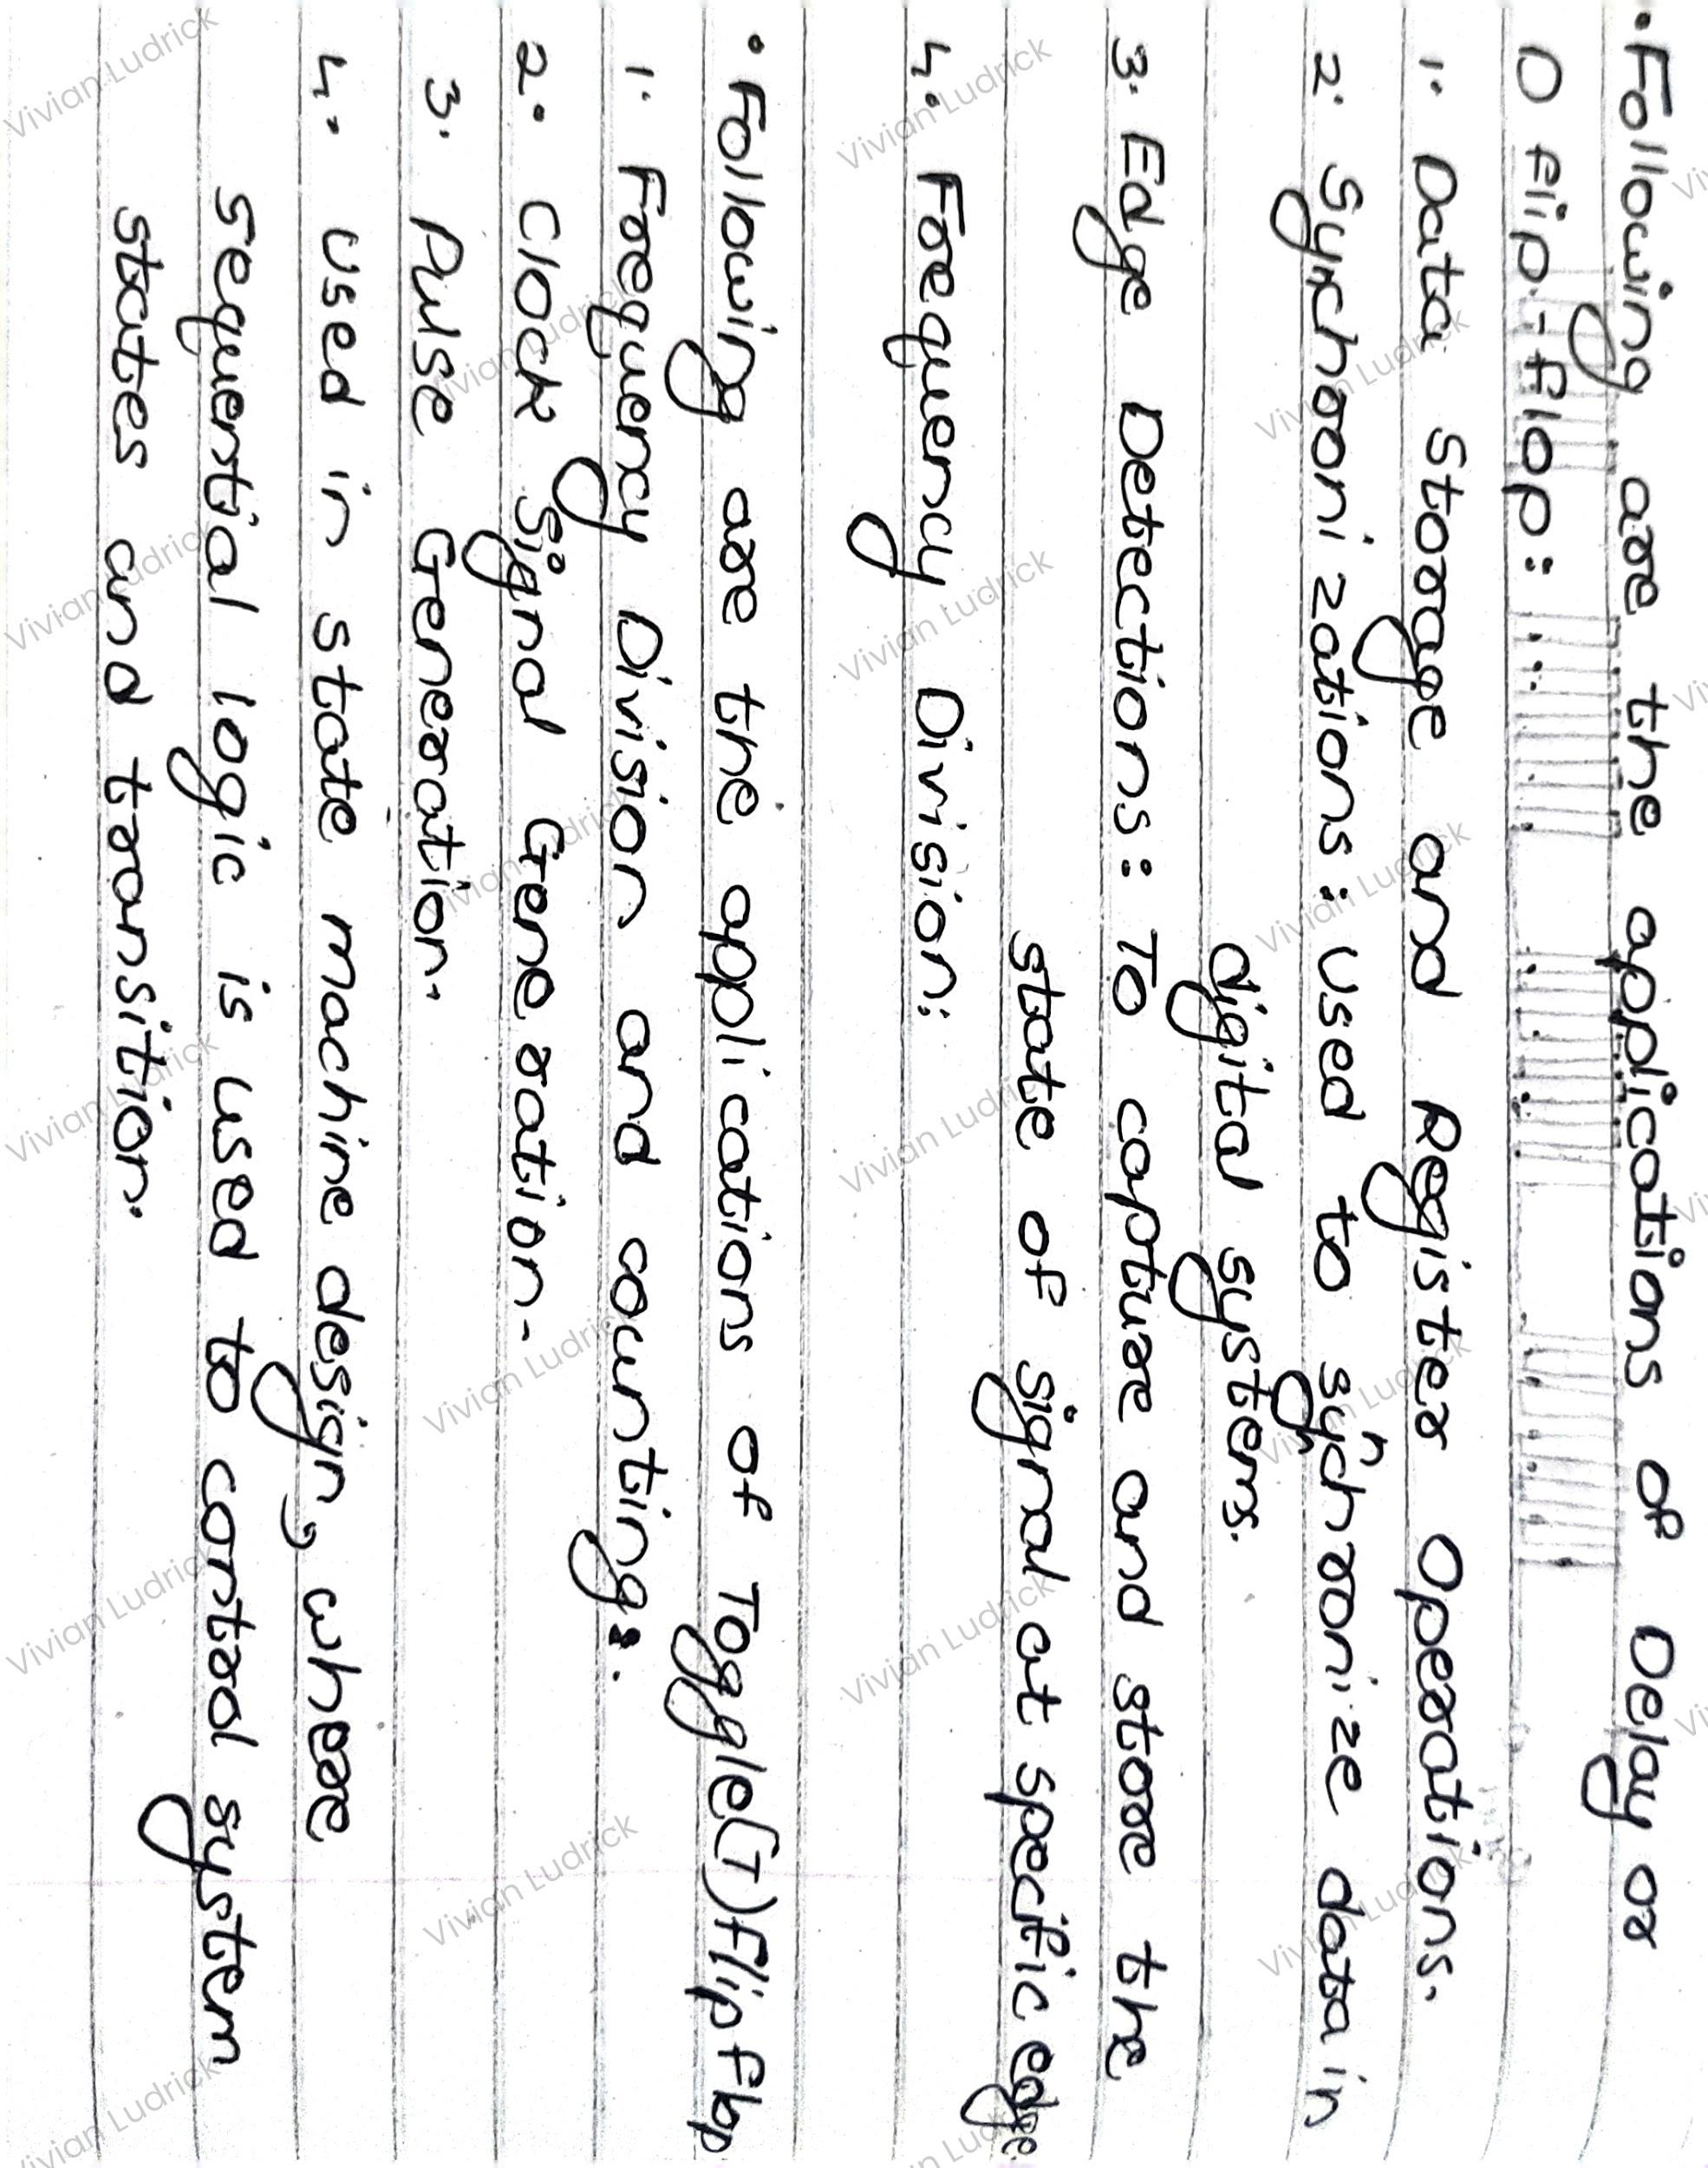 • Following are the applications of Delay or
D Flip-Flop:
1. Data Storage and Register Operations.
2. Synchronizations: Used to synchronize data in
digital systems.
3. Edge Detections: To capture and store the
state of signal at specific edge.
4. Frequency Division:
• Following are the applications of Toggle(T)Flip Flop
1. Frequency Division and counting:.
2. Clock Signal Generation.
3. Pulse Generation.
4. Used in state machine design, where
sequential logic is used to control system
states and transition.
Vivian Ludrick